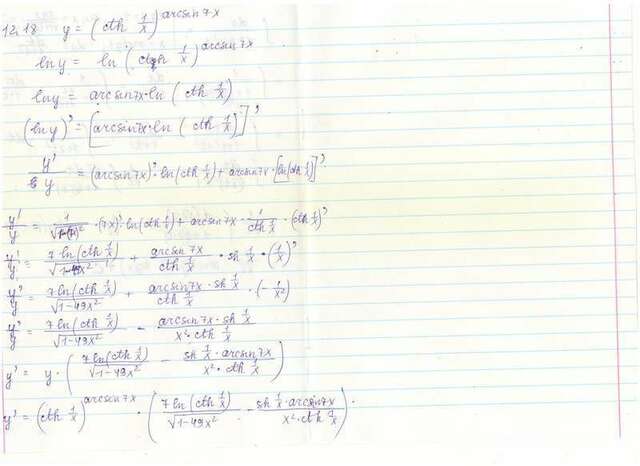 12.18 y = (cth 1/x)^arcsin7x
ln y = ln (cth 1/x)^arcsin7x
ln y = arcsin7x·ln (cth 1/x)
(ln y)' = [arcsin7x·ln (cth 1/x)]'
y'/y = (arcsin7x)'·ln(cth 1/x) + arcsin7x·[ln(cth 1/x)]'
y'/y = 1/√(1-(7x)²)·(7x)'·ln(cth 1/x) + arcsin7x·1/(cth 1/x)·(cth 1/x)'
y'/y = 7 ln(cth 1/x)/√(1-49x²) + arcsin 7x/(cth 1/x)·sh 1/x·(1/x)'
y'/y = 7 ln(cth 1/x)/√(1-49x²) + arcsin7x·sh 1/x/(cth 1/x)·(-1/x²)
y'/y = 7 ln(cth 1/x)/√(1-49x²) - arcsin7x·sh 1/x/(x²·cth 1/x)
y' = y·(7 ln(cth 1/x)/√(1-49x²) - sh 1/x·arcsin7x/(x²·cth 1/x))
y' = (cth 1/x)^arcsin7x·(7 ln(cth 1/x)/√(1-49x²) - sh 1/x·arcsin7x/(x²·cth 1/x)).